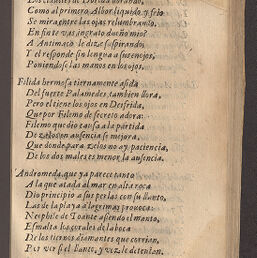 Los claueles de Dorida dorando,
Como al primero Albor liquido yelo
Se mira entre las ojas relumbrando.
En fin te vas ingrato dueño mio?
A Antimaco le dize suspirando:
Y el responde sin lengua a sus enojos,
Poniendose las manos en los ojos.
Filida hermosa tiernamente asida
Del fuerte Palamedes, tambien llora,
Pero el tiene los ojos en Desfrida,
Que por Filemo de secreto adora:
Filemo que dio causa a la partida
De zelos on ausencia se mejora,
Que donde para zelos no ay paciencia,
De los dos males es menor la ausencia.
Andromeda, que ya parece tanto
A la que atada al mar en alta roca
Dio principio a sus perlas con su llanto,
Las de la playa a lagrimas prouoca:
Neophile de Toante asiendo el manto,
Esmalta los corales de la boca
De los tiernos diamantes que corrian,
Por ver si el llanto, y voz le detenian.